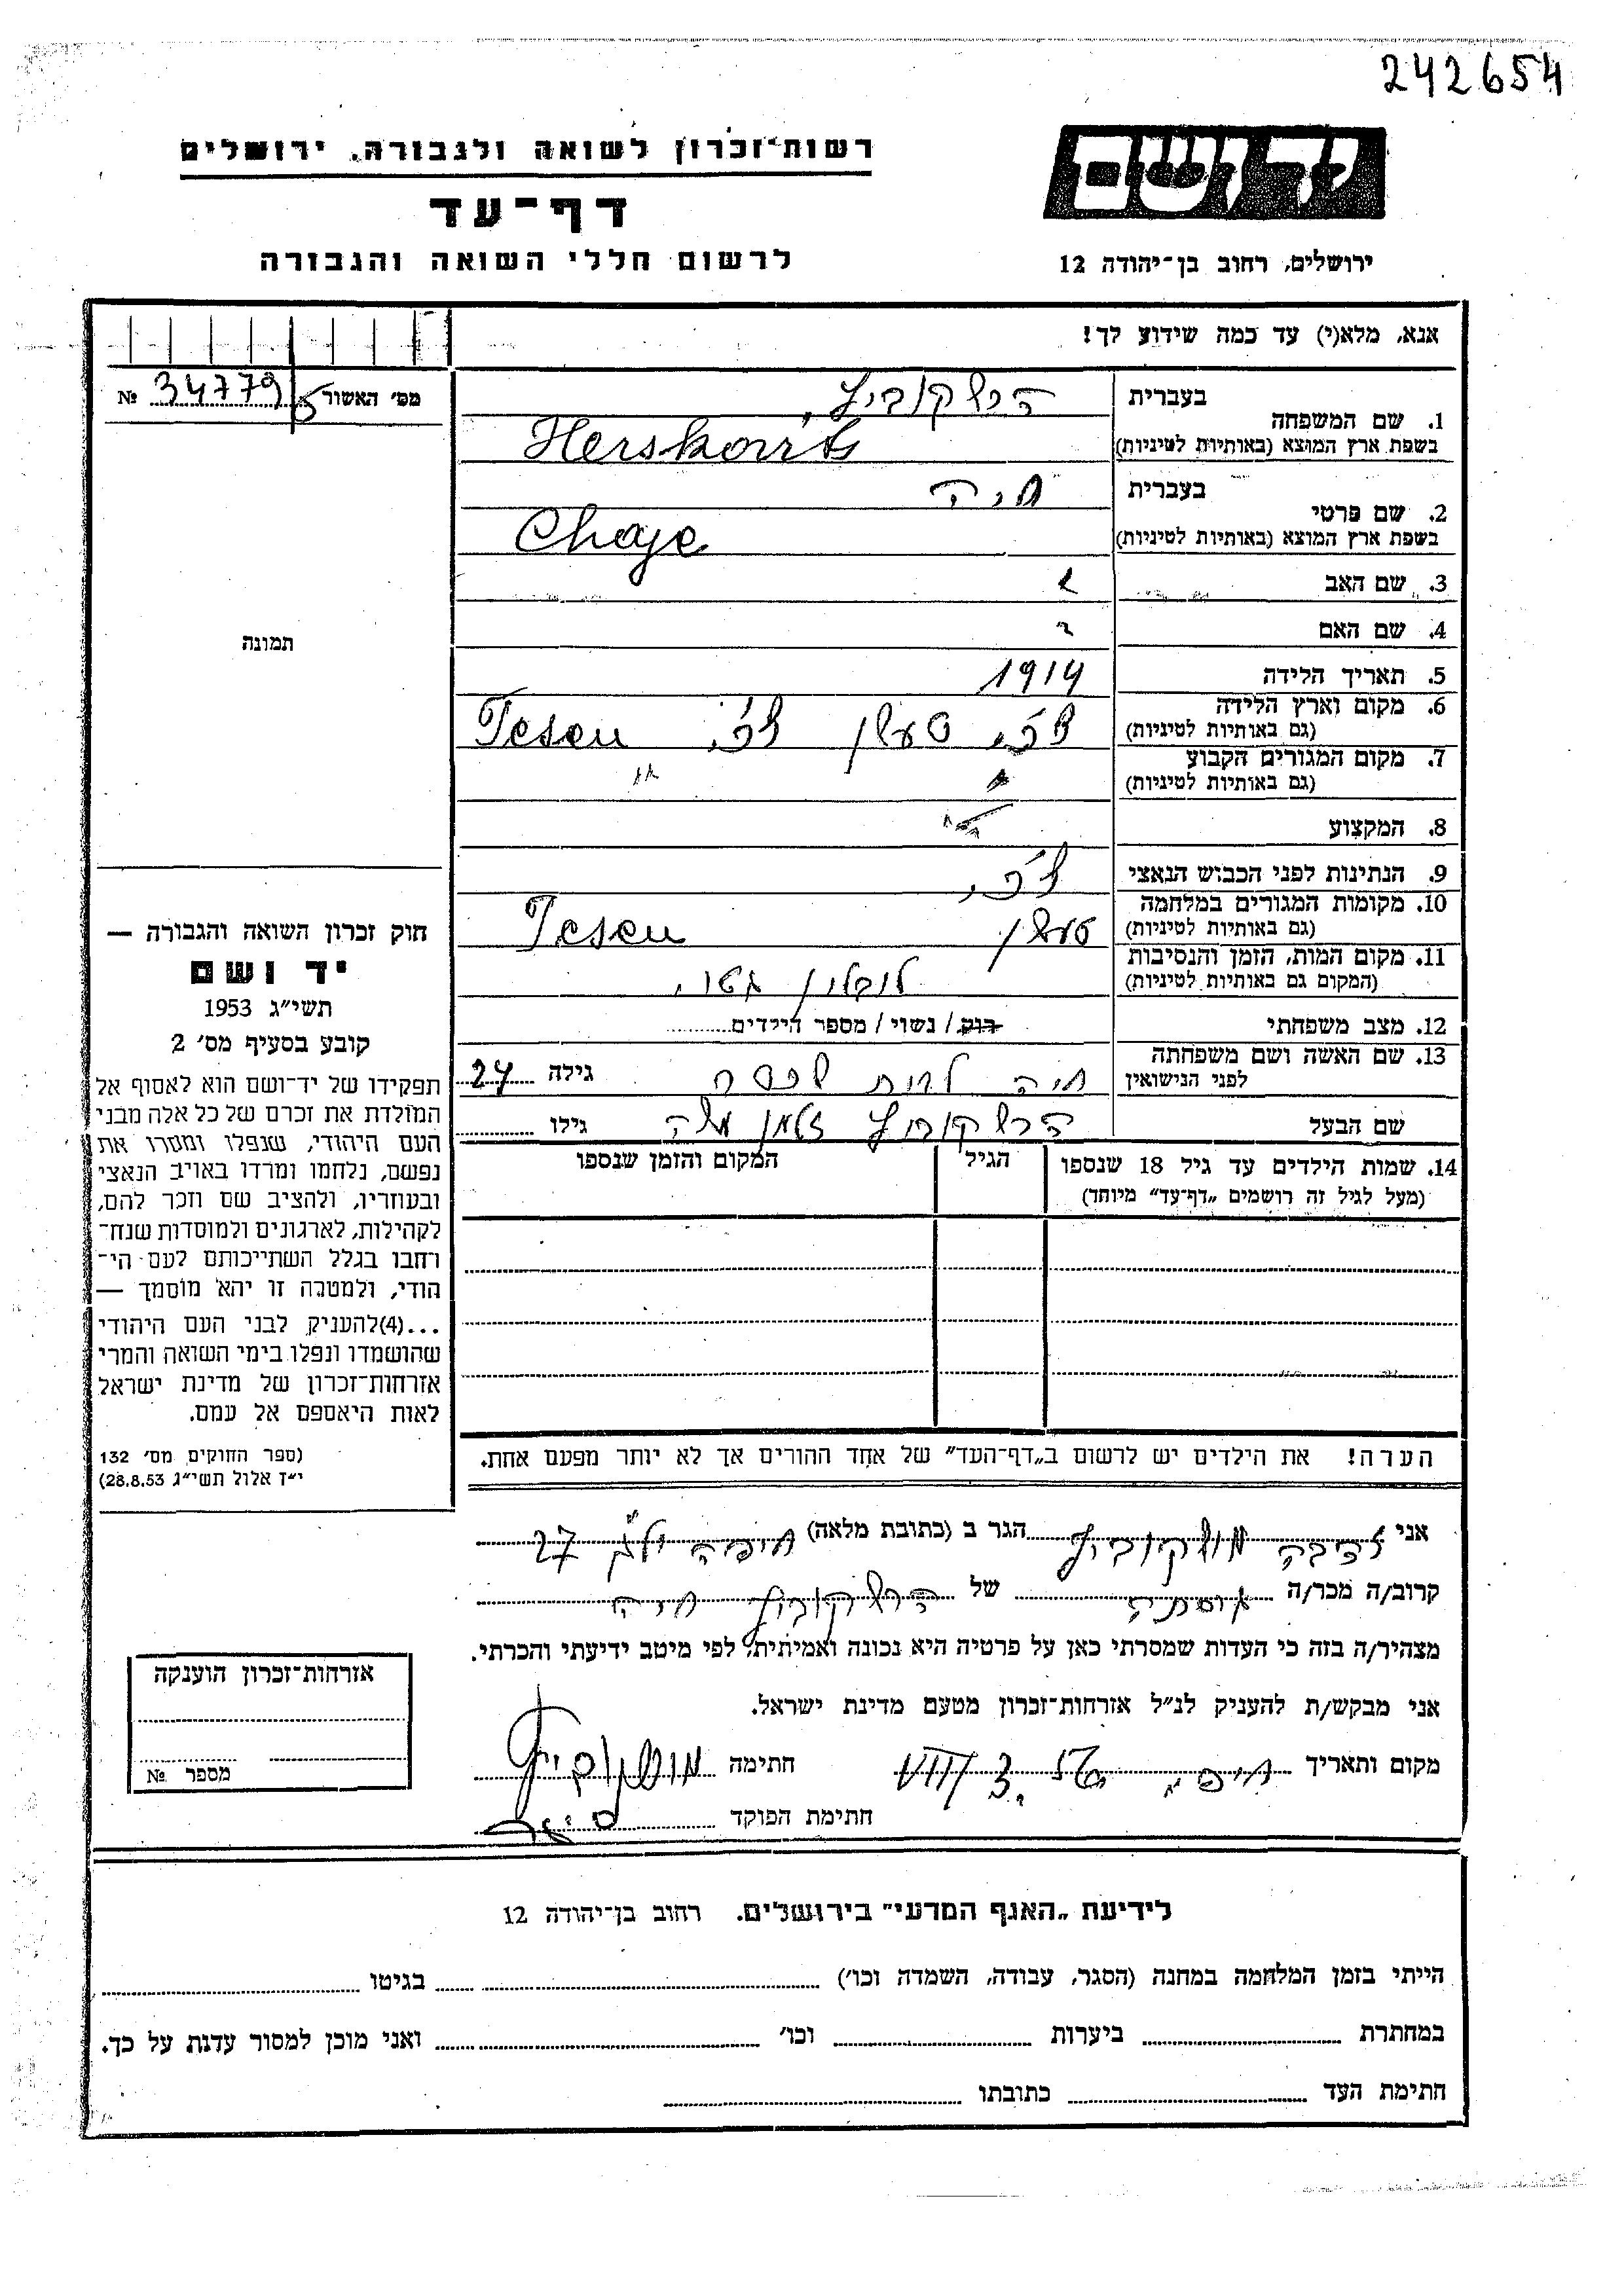 242654
יד ושם
רשות־זכרון לשואה ולגבורה. ירושלים
דף־עד
לרשום חללי השואה והגבורה
ירושלים, רחוב בן־יהודה 12
אנא, מלא(י) עד כמה שידוע לך!
מס׳ האשור 34779/5 №
בעברית הרשקוביץ,
1. שם המשפחה
בשפת ארץ המוצא (באותיות לטיניות) Herskovits
בעברית חיה
2. שם פרטי
בשפת ארץ המוצא (באותיות לטיניות) Chaje
3. שם האב
4. שם האם
תמונה
5. תאריך הלידה 1914
6. מקום וארץ הלידה
(גם באותיות לטיניות) צ׳כ, טעשן צ׳כ, Tesen
7. מקום המגורים הקבוע
(גם באותיות לטיניות) " "
8. המקצוע
9. הנתינות לפני הכבוש הנאצי צ׳כ,
10. מקומות המגורים במלחמה
(גם באותיות לטיניות) טעשן Tesen
11. מקום המות, הזמן והנסיבות
(המקום גם באותיות לטיניות) לובלין גטו,
12. מצב משפחתי רוק / נשוי / מספר הילדים
13. שם האשה ושם משפחתה
לפני הנישואין חיה לבית גילה 24
שם הבעל הרשקוביץ זלמן משה גילו
14. שמות הילדים עד גיל 18 שנספו
(מעל לגיל זה רושמים „דף־עד״ מיוחד)
הגיל
המקום והזמן שנספו
חוק זכרון השואה והגבורה —
יד ושם
תשי״ג 1953
קובע בסעיף מס׳ 2
תפקידו של יד־ושם הוא לאסוף אל
המולדת את זכרם של כל אלה מבני
העם היהודי, שנפלו ומסרו את
נפשם, נלחמו ומרדו באויב הנאצי
ובעוזריו, ולהציב שם וזכר להם,
לקהילות, לארגונים ולמוסדות שנח־
רחבו בגלל השתייכותם לעם הי־
הודי, ולמטרה זו יהא מוסמך —
...(4)להעניק לבני העם היהודי
שהושמדו ונפלו בימי השואה והמרי
אזרחות־זכרון של מדינת ישראל
לאות היאספם אל עמם.
(ספר החוקים מס׳ 132
י״ז אלול תשי״ג 28.8.53)
הערה! את הילדים יש לרשום ב„דף־העד״ של אחד ההורים אך לא יותר מפעם אחת.
אני מושקוביץ הגר ב (כתובת מלאה) חיפה יל״ג 27
קרוב/ה מכר/ה של הרשקוביץ חיה
מצהיר/ה בזה כי העדות שמסרתי כאן על פרטיה היא נכונה ואמיתית, לפי מיטב ידיעתי והכרתי.
אני מבקש/ת להעניק לנ״ל אזרחות־זכרון מטעם מדינת ישראל.
מקום ותאריך חיפה 3. VIII חתימה מושקוביץ
חתימת הפוקד
אזרחות־זכרון הוענקה
מספר №
לידיעת „האגף המדעי״ בירושלים. רחוב בן־יהודה 12
הייתי בזמן המלחמה במחנה (הסגר, עבודה, השמדה וכו׳) בגיטו
במחתרת ביערות וכו׳ ואני מוכן למסור עדות על כך.
חתימת העד כתובתו